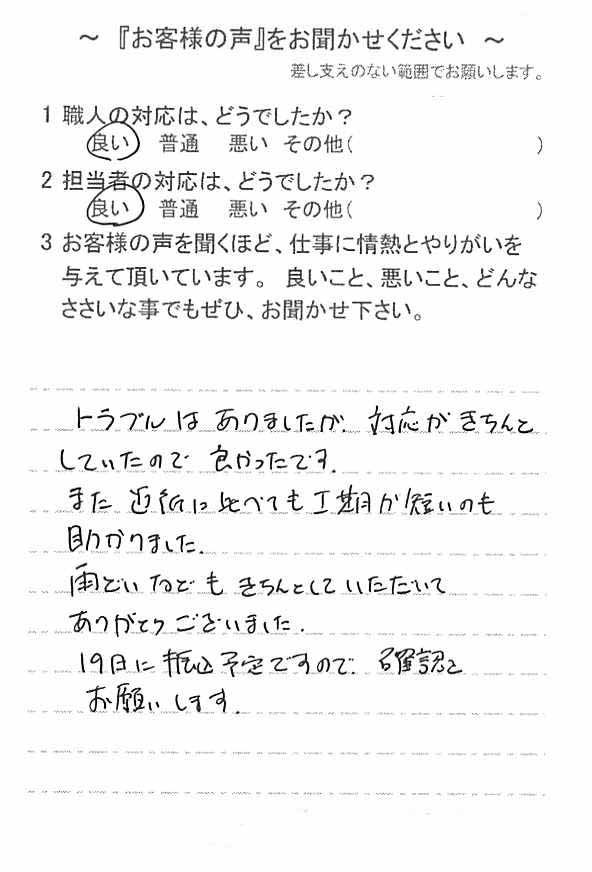 ～『お客様の声』をお聞かせください ～
差し支えのない範囲でお願いします。
1 職人の対応は、どうでしたか？
良い 普通 悪い その他( )
2 担当者の対応は、どうでしたか？
良い 普通 悪い その他( )
3 お客様の声を聞くほど、仕事に情熱とやりがいを
与えて頂いています。 良いこと、悪いこと、どんな
ささいな事でもぜひ、お聞かせ下さい。
トラブルはありましたが、対応がきちんと
していたので良かったです。
また 近 に比べても工期が短いのも
助かりました。
雨どいなどもきちんとしていただいて
ありがとうございました。
19日に振込予定ですので、確認を
お願いします。